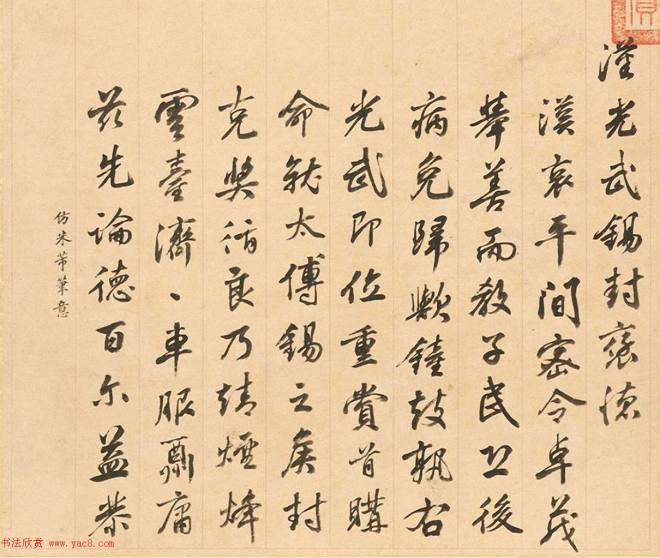 漢光武錫封褒德
漢哀平間密令卓茂
舉善而教子民以後
病免歸歟鐘鼓孰右
光武即位重賞首購
命就太傅錫之矦封
克奬循良乃靖煙烽
雲臺濟〻車服酬庸
茲先論德百尔益恭
仿米芾筆意
书法欣赏 www.yac8.com